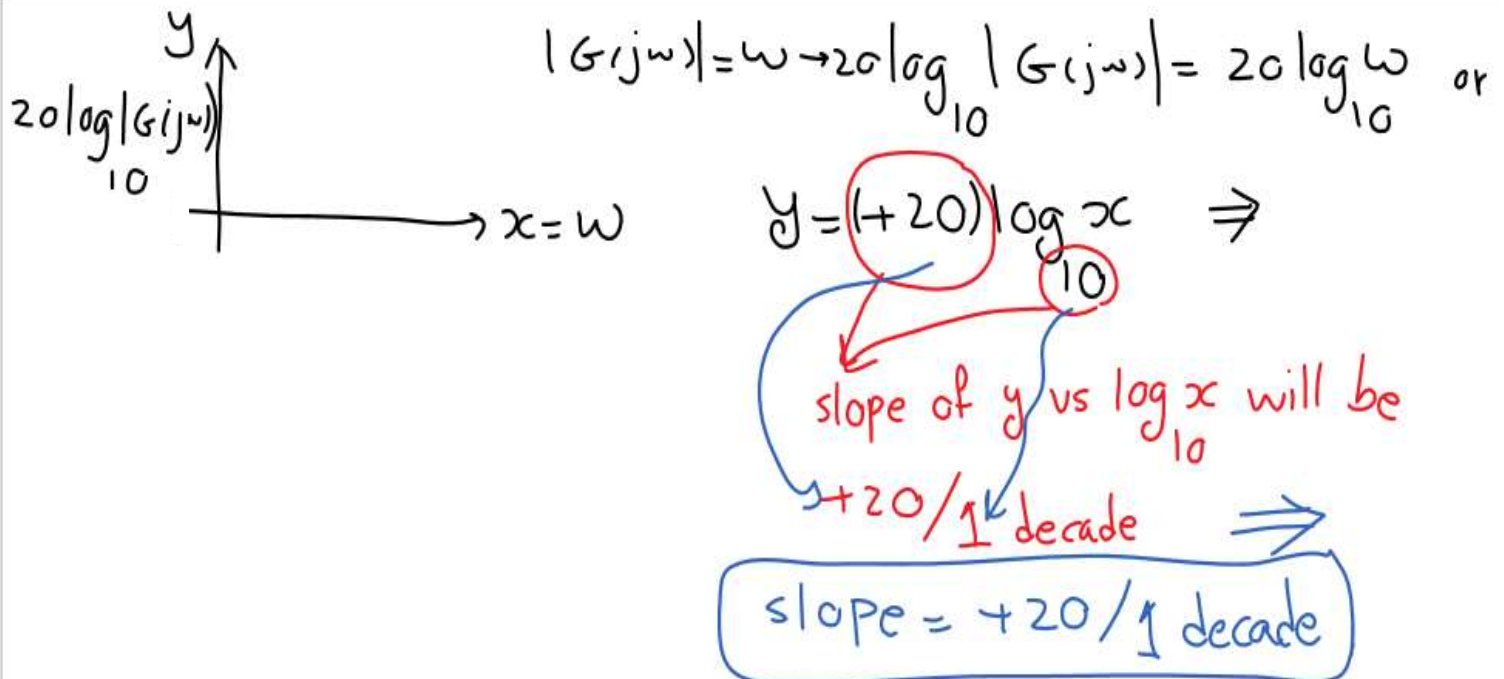 y
20log|G(jω)|
10
x=ω
|G(jω)|=ω→20log₁₀|G(jω)|= 20 log₁₀ω or
y=(+20)log₁₀x ⇒
slope of y vs log₁₀x will be
+20/1 decade ⇒
slope = +20/1 decade